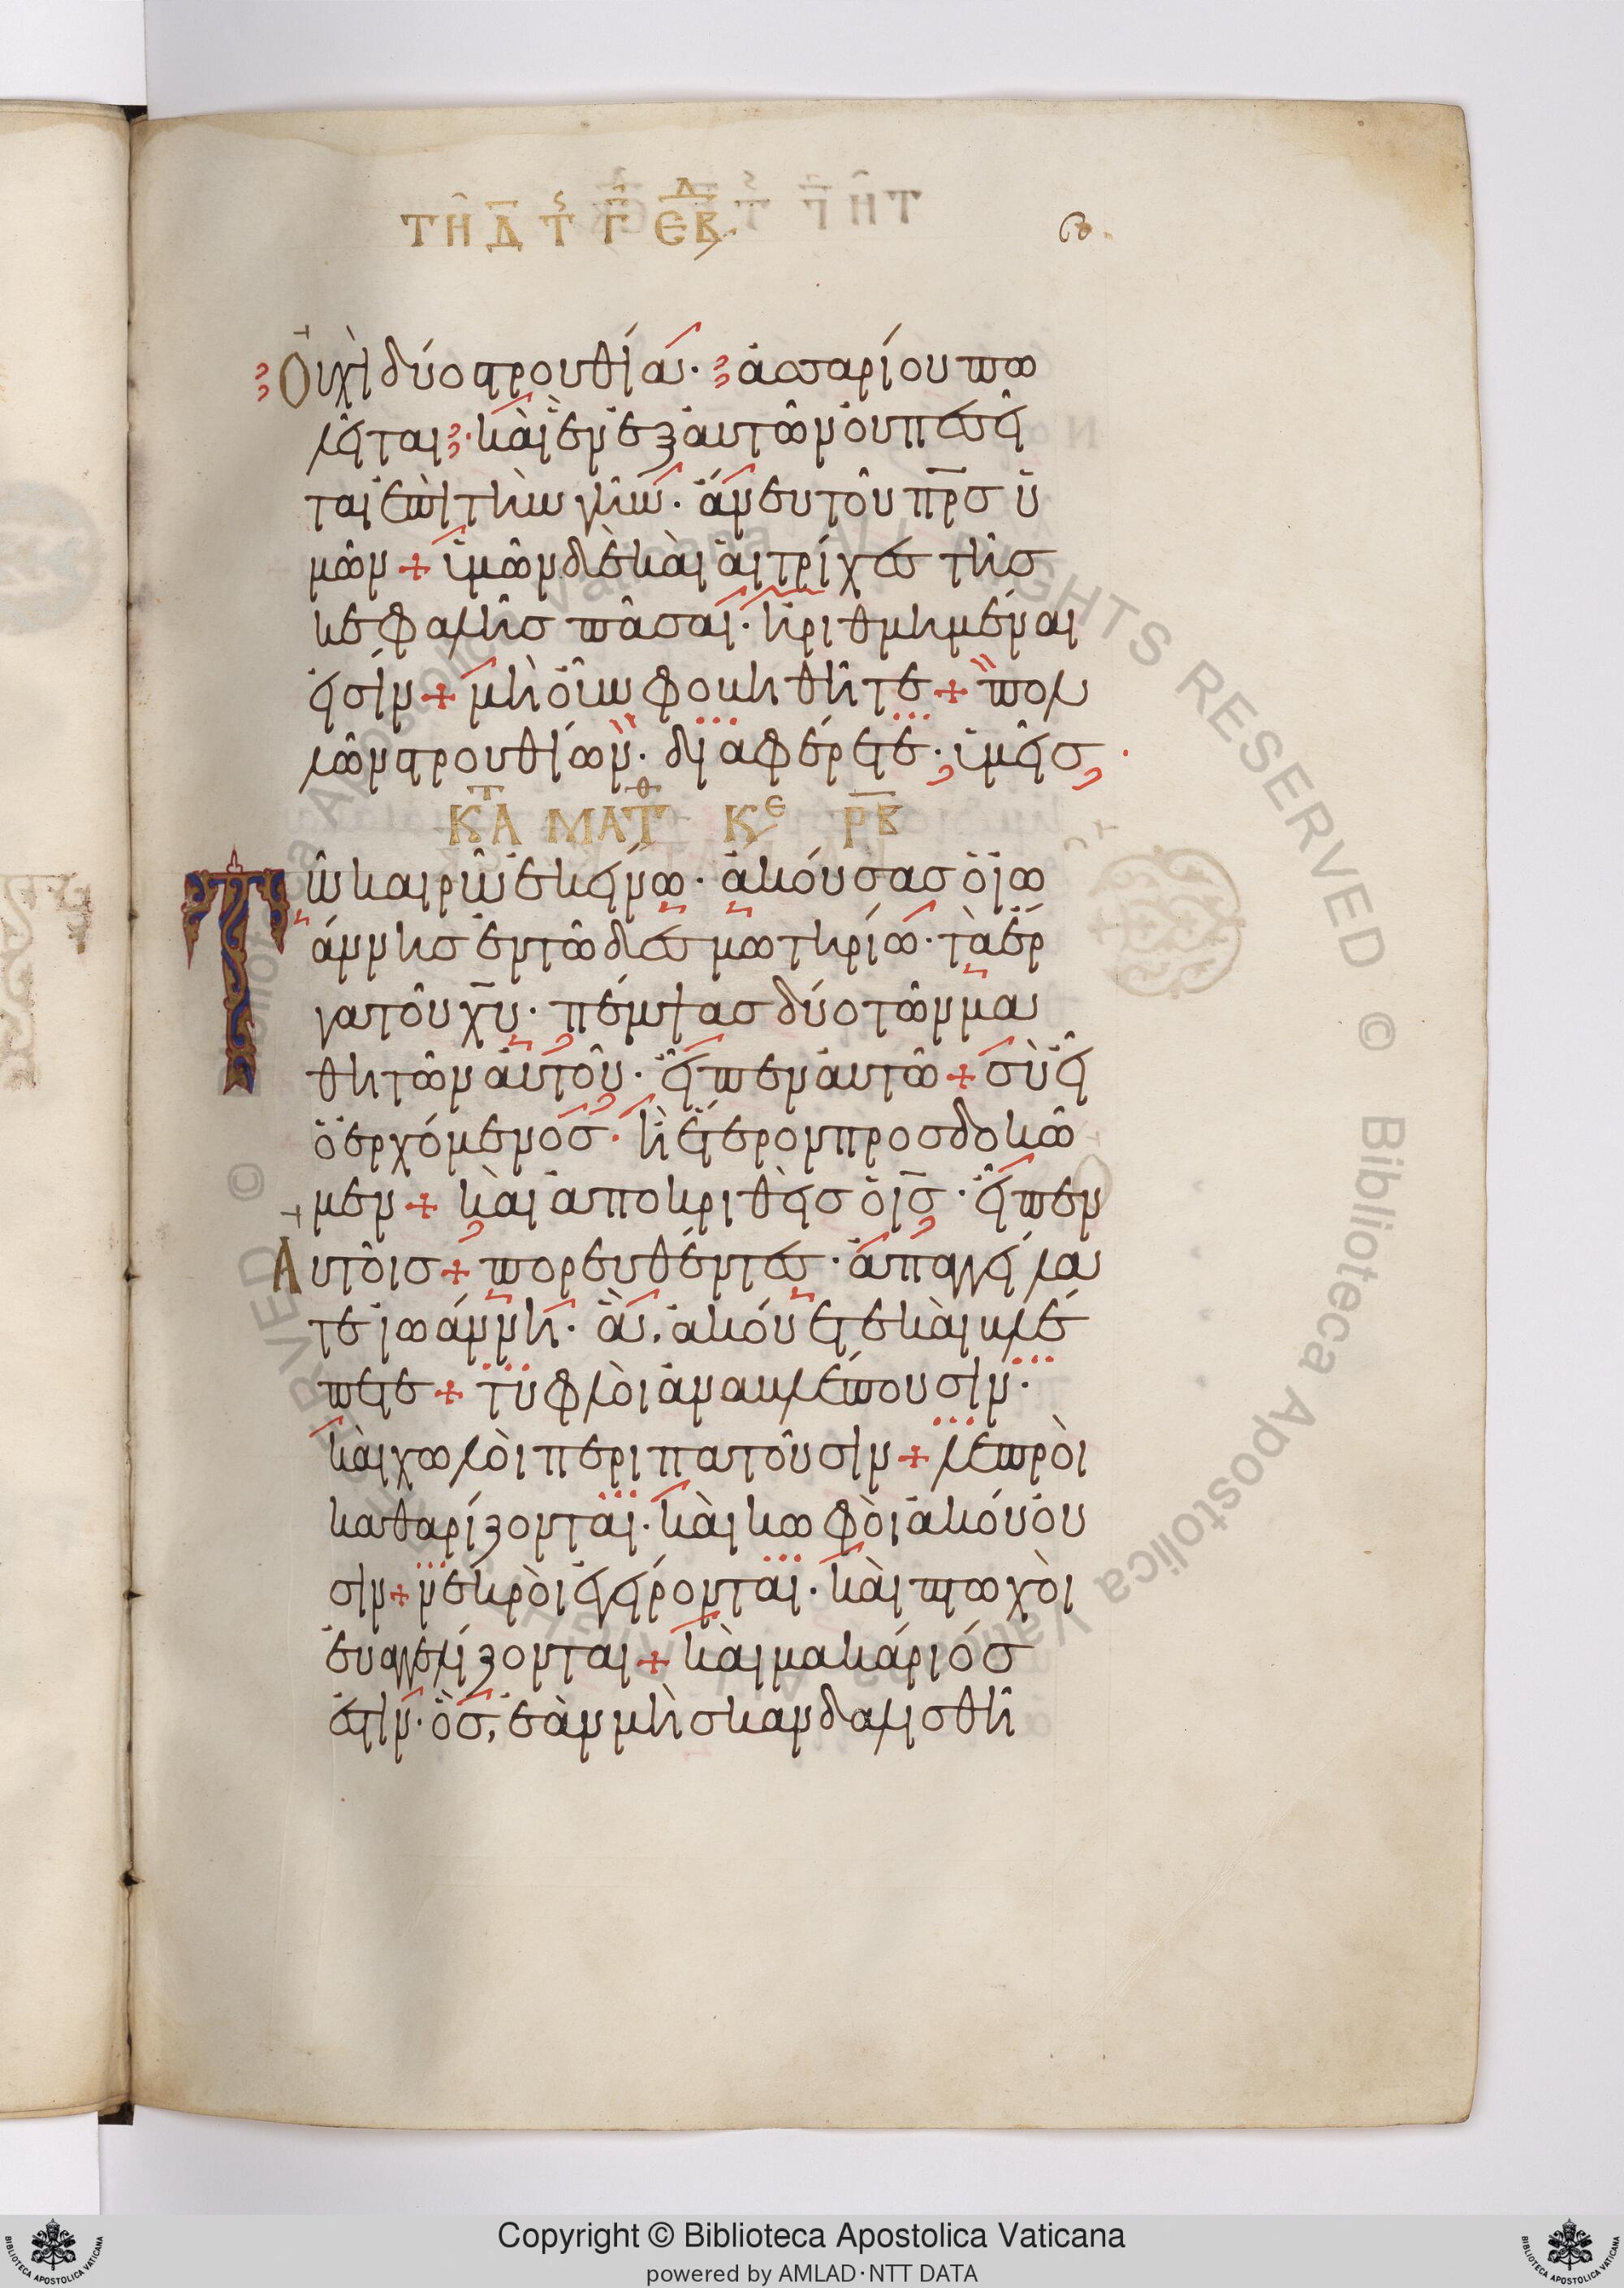 ΤΗ Δ Τς Γ ΕΒΔ
β
Οὐχὶ δύο στρουθία· ἀσσαρίου πω
λεῖται· καὶ ἓν ἐξ αὐτῶν οὐ πεσεῖ
ται ἐπὶ τὴν γῆν· ἄνευ τοῦ πρς ὑ
μῶν + ὑμῶν δὲ καὶ αἱ τρίχες τῆς
κεφαλῆς πᾶσαι· ἠριθμημέναι
εἰσίν + μὴ οὖν φοβηθῆτε + πολ
λῶν στρουθίων· διαφέρετε· ὑμεῖς
ΚΑΤ ΜΑΤΘ ΚΕ ΡΒ
Τῶ καιρῶ ἐκείνω· ἀκούσας ὁ ἰω
άννης ἐν τῶ δεσμωτηρίω· τὰ ἔρ
γα τοῦ χυ· πέμψας δύο τῶν μα
θητῶν αὐτοῦ· εἶπεν αὐτῶ + σὺ εἶ
ὁ ἐρχόμενος· ἢ ἕτερον προσδοκῶ
μεν + καὶ ἀποκριθεὶς ὁ ις· εἶπεν
Αὐτοῖς + πορευθέντες· ἀπαγγείλα
τε ἰωάννη· ἃ ἀκούετε καὶ βλέ
πετε + τυφλοὶ ἀναβλέπουσιν·
καὶ χωλοὶ περιπατοῦσιν + λεπροὶ
καθαρίζονται· καὶ κωφοὶ ἀκούου
σιν + νεκροὶ ἐγείρονται· καὶ πτωχοὶ
εὐαγγελίζονται + καὶ μακάριός
ἐστιν· ὃς, ἐὰν μὴ σκανδαλισθῆ
Copyright © Biblioteca Apostolica Vaticana
powered by AMLAD·NTT DATA